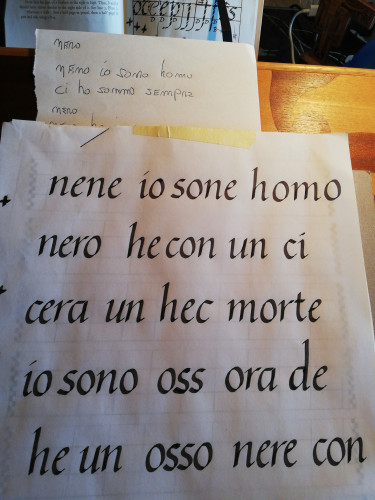 nero
nero io sono homo
ci ho sommo sempre
nero
nene io sone homo
nero he con un ci
cera un hec morte
io sono oss ora de
he un osso nere con